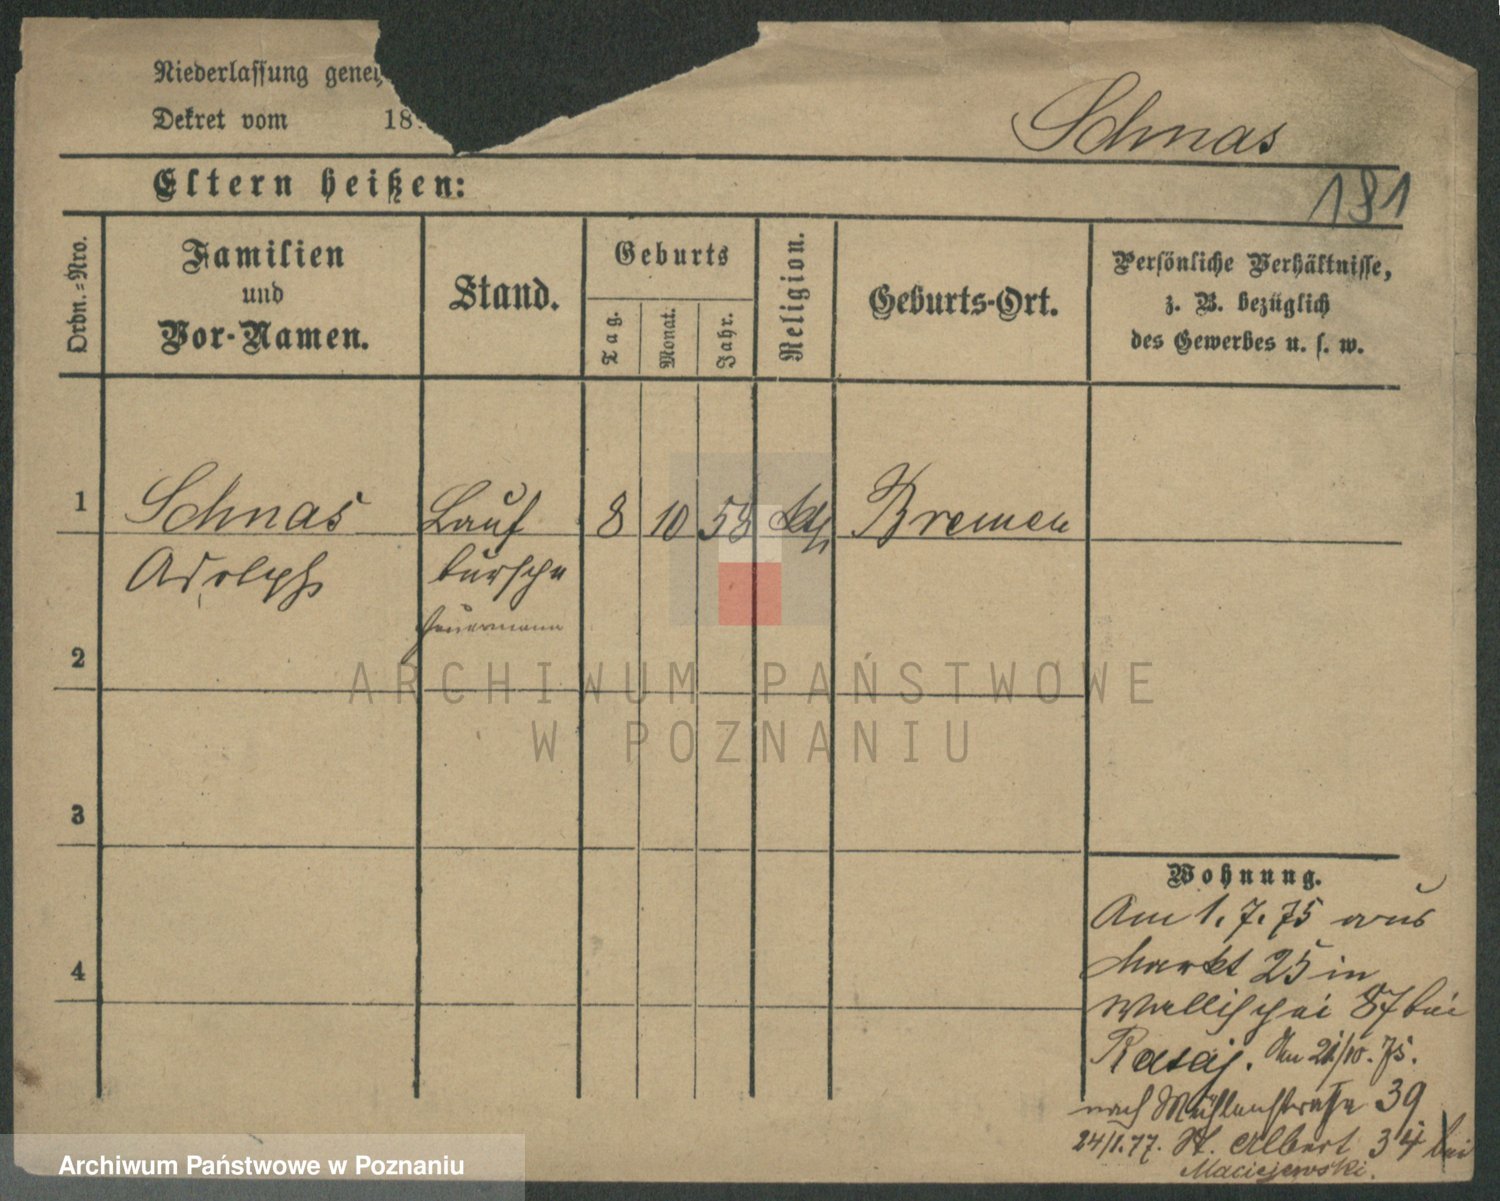 Niederlassung geneh
Dekret vom 18
Schnas
Eltern heißen:
181
Ordn.=Nro.
Familien
und
Vor-Namen.
Stand.
Geburts
Tag.
Monat.
Jahr.
Religion.
Geburts-Ort.
Persönliche Verhältnisse,
z. B. bezüglich
des Gewerbes u. s. w.
1 Schnas Lauf 8 10 58 kth Bremen
Adolph bursche
2
3
4
Wohnung.
Am 1. 7. 75 aus
Markt 25 in
Wallischei 87 bei
Rataj. Am 21/10. 75.
nach Mühlenstraße 39
24/1.77. St. Albert 34 bei
Maciejewski.
ARCHIWUM PAŃSTWOWE
W POZNANIU
Archiwum Państwowe w Poznaniu